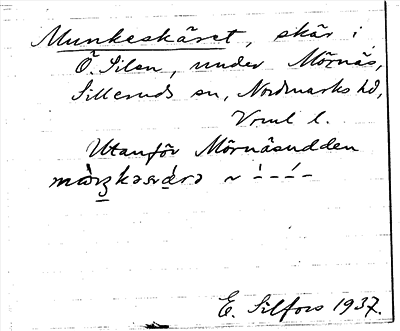 Munkeskäret, skär i
Ö. Silen, under Mörnäs,
Silleruds sn, Nordmarks hd,
Vrml l.
Utanför Mörnäsudden
~
E. Silfors 1937.